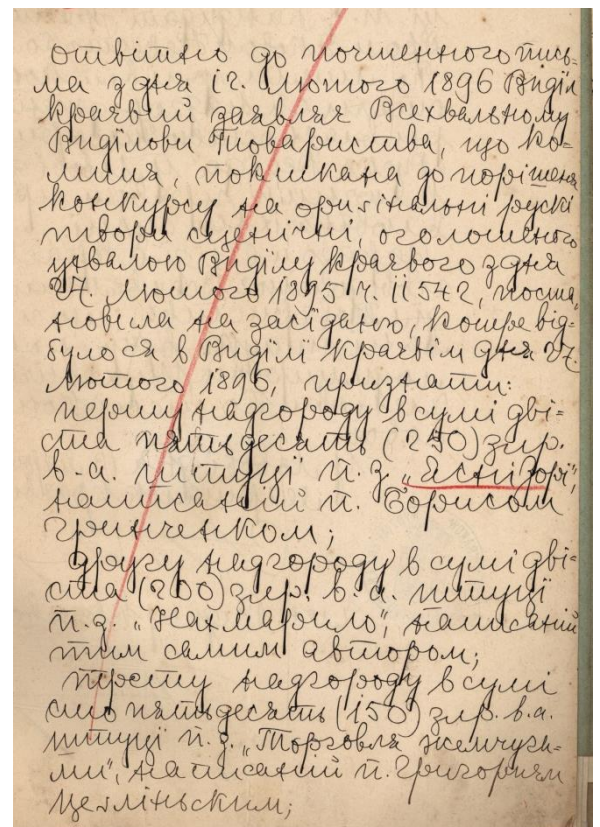 отвітно до почтенного пись=
ма з дня 12. Лютого 1896 Виділ
краєвий заявляє Всехвальному
Виділови Товариства, що ко=
мисия, покликана до порішеня
конкурсу на оригінальні рускі
твори сценічні, оголошеного
ухвалою Виділу краєвого з дня
27. Лютого 1895 ч. 11542, поста=
новила на засіданю, котре від=
булося в Виділі краєвім дня 27.
Лютого 1896, признати:
першу надгороду в сумі дві=
ста пятьдесять (250) злр.
в. а. штуці п. з. „Ясні Зорі",
написаній п. Борисом
Грінченком;
другу надгороду в сумі дві=
ста (200) злр. в. а. штуці
п. з. „Нахмарило", написаній
тим самим автором;
трету надгороду в сумі
сто пятьдесять (150) злр. в. а.
штуці п. з. „Торговля жемчуга=
ми", написаній п. Григориєм
Цегліньским;